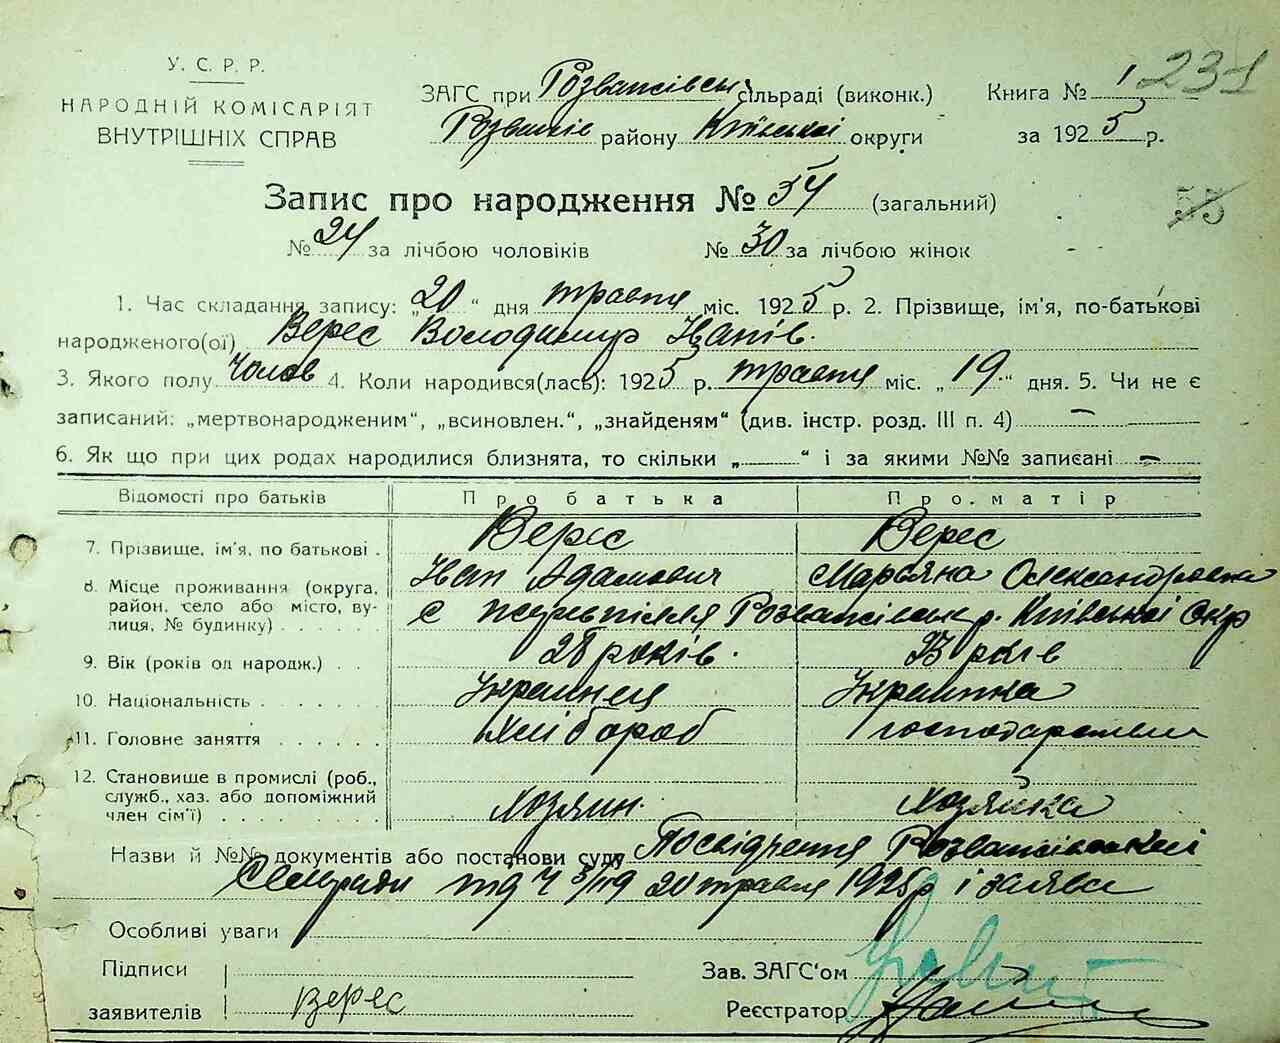 231
У. С. Р. Р.
НАРОДНІЙ КОМІСАРІЯТ
ВНУТРІШНІХ СПРАВ
ЗАГС при Розважівськ сільраді (виконк.) Книга № 1
Розваж району Київської округи за 1925 р.
Запис про народження № 54 (загальний)
55
№ 24 за лічбою чоловіків № 30 за лічбою жінок
1. Час складання запису: „20 " дня травня міс. 1925 р. 2. Прізвище, ім'я, по-батькові
народженого(ої) Верес Володимир Іванів.
3. Якого полу Чолов 4. Коли народився(лась): 1925 р. травня міс. „19" дня. 5. Чи не є
записаний: „мертвонародженим", „всиновлен.", „знайденям" (див. інстр. розд. III п. 4) —
6. Як що при цих родах народилися близнята, то скільки „ " і за якими №№ записані —
Відомості про батьків Про батька Про матір
7. Прізвище, ім'я, по батькові . Верес Верес
Іван Адамович Марьяна Олександровна
8. Місце проживання (округа, район, село або місто, вулиця, № будинку) с Розважівськ р. Київської Окр
9. Вік (років од народж.) . . 28 років. 23 років
10. Національність Украинец Украинка
11. Головне заняття Хлібороб господарюєт
12. Становище в промислі (роб., служб., хаз. або допоміжний член сім'ї) Хозяин. Хозяйка
Назви й №№ документів або постанови суду Посвідчення Розважівської
Сельради 20 травня 1925 р і заява
Особливі уваги
Підписи
заявителів Верес
Зав. ЗАГС'ом
Реєстратор